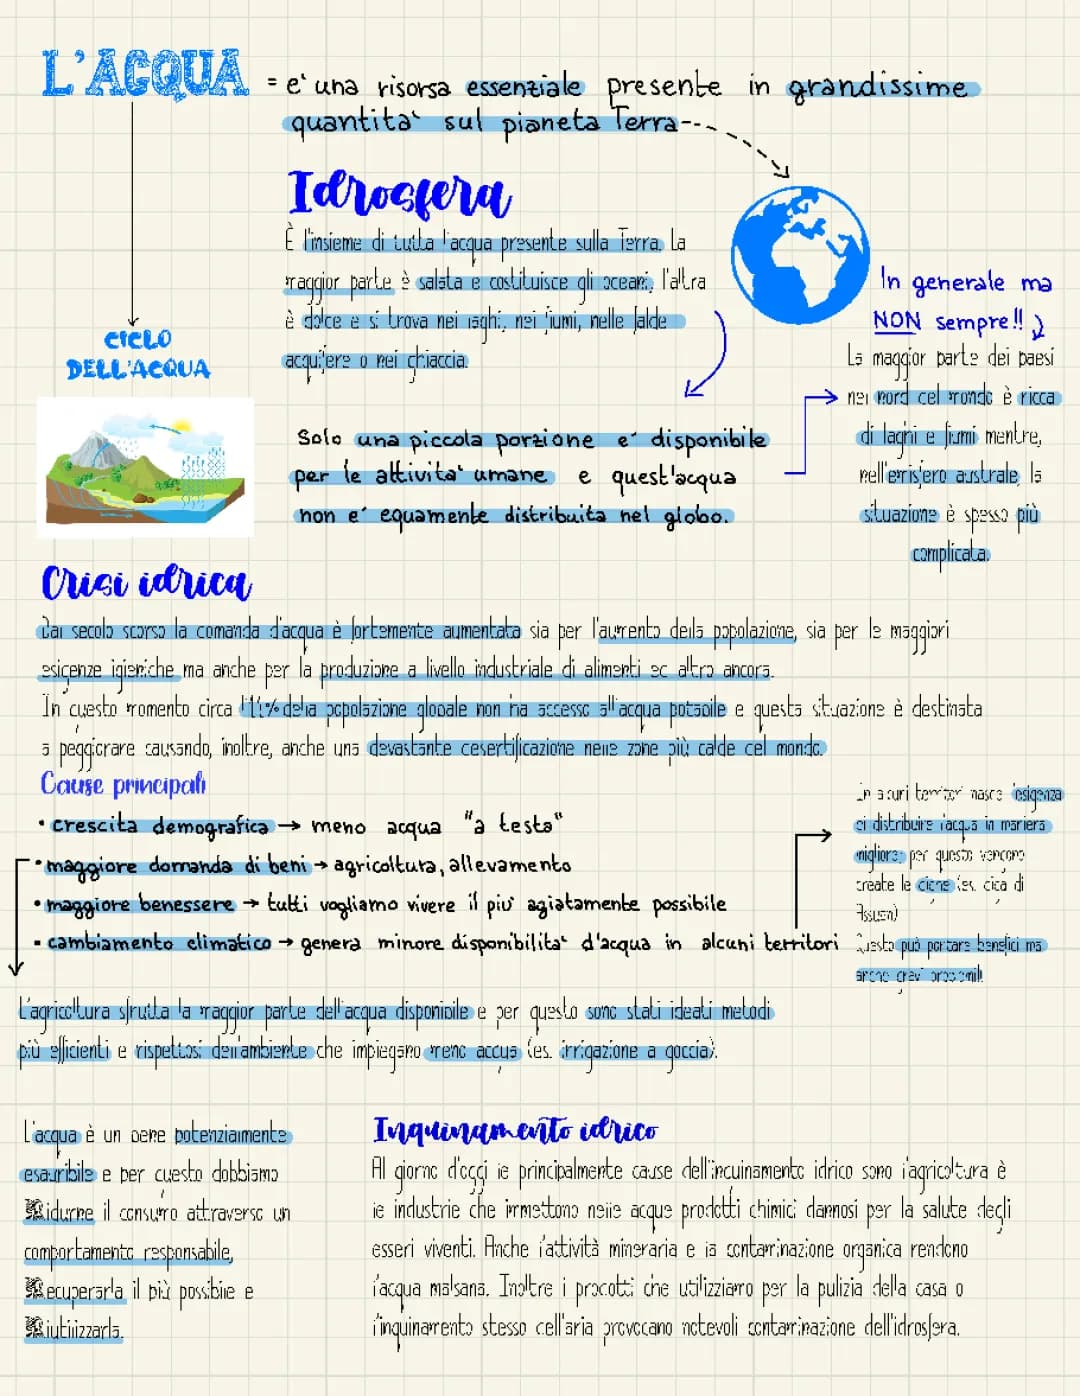 L'ACQUA
= e' una risorsa essenziale presente in grandissime
quantita' sul pianeta Terra
Idrosfera
È l'insieme di tutta l'acqua presente sulla Terra. La
maggior parte è salata e costituisce gli oceani, l'altra
è dolce e si trova nei laghi, nei fiumi, nelle falde
acquifere o nei ghiacciai.
In generale ma
NON sempre!!
La maggior parte dei paesi
nel nord del mondo è ricca
di laghi e fiumi mentre,
nell'emisfero australe, la
situazione è spesso più
complicata.
CICLO
DELL'ACQUA
Solo una piccola porzione e' disponibile
per le attivita' umane e quest'acqua
non e' equamente distribuita nel globo.
Crisi idrica
Dal secolo scorso la domanda d'acqua è fortemente aumentata sia per l'aumento della popolazione, sia per le maggiori
esigenze igieniche ma anche per la produzione a livello industriale di alimenti ed altro ancora.
In questo momento circa l'11% della popolazione globale non ha accesso all'acqua potabile e questa situazione è destinata
a peggiorare causando, inoltre, anche una devastante desertificazione nelle zone più calde del mondo.
Cause principali
• crescita demografica → meno acqua "a testa"
• maggiore domanda di beni → agricoltura, allevamento
• maggiore benessere → tutti vogliamo vivere il piu' agiatamente possibile
• cambiamento climatico → genera minore disponibilita' d'acqua in alcuni territori
In alcuni territori nasce l'esigenza
di distribuire l'acqua in maniera
migliore; per questo vengono
create le dighe (es. diga di
Assuan)
Questo può portare benefici ma
anche gravi problemi!
L'agricoltura sfrutta la maggior parte dell'acqua disponibile e per questo sono stati ideati metodi
più efficienti e rispettosi dell'ambiente che impiegano meno acqua (es. irrigazione a goccia).
L'acqua è un bene potenzialmente
esauribile e per questo dobbiamo
Ridurne il consumo attraverso un
comportamento responsabile,
Recuperarla il più possibile e
Riutilizzarla.
Inquinamento idrico
Al giorno d'oggi le principalmente cause dell'inquinamento idrico sono l'agricoltura è
le industrie che immettono nelle acque prodotti chimici dannosi per la salute degli
esseri viventi. Anche l'attività mineraria e la contaminazione organica rendono
l'acqua malsana. Inoltre i prodotti che utilizziamo per la pulizia della casa o
l'inquinamento stesso dell'aria provocano notevoli contaminazione dell'idrosfera.